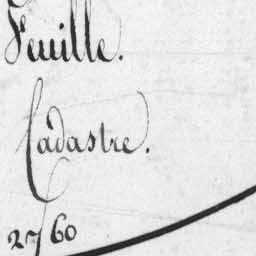 Feuille.
Cadastre.
2760